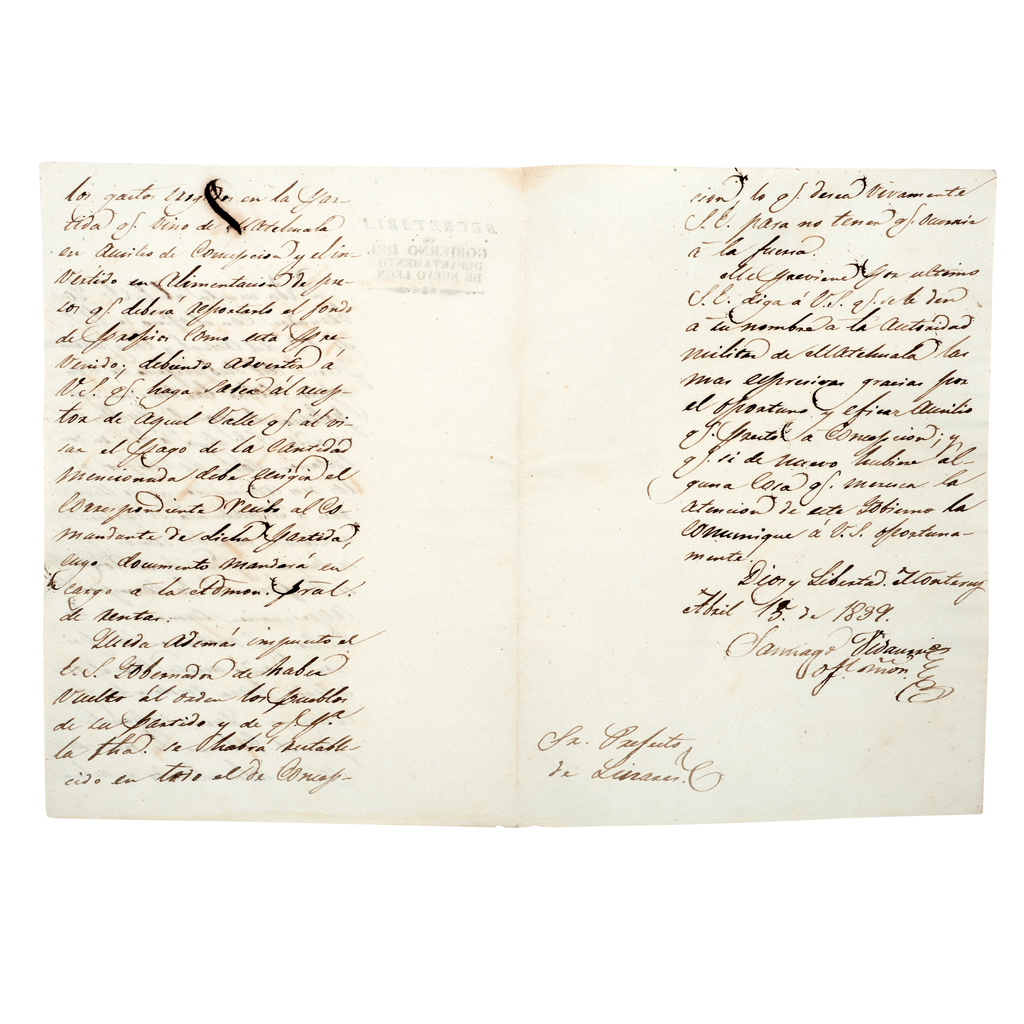 los gastos erogados en la par-
tida qe. vino de Matehuala
en auxilio de Concepcion y el in-
vertido en alimentacion de pre-
sos qe. deberá reportarlo el fondo
de propios como está pre-
venido; debiendo advertir á
V.S. qe. haga saber al recep-
tor de aquel Valle qe. al vi-
sar el pago de la cantidad
mencionada debe exigir el
correspondiente recibo al Co-
mandante de dicha partida,
cuyo documento mandará en
cargo á la Admon. pral.
de rentas.
Queda además impuesto el
E. S. Gobernador de haber
vuelto al orden los pueblos
de su partido y de qe. pa.
la fha. se habrá restable-
cido en todo el de Concep-
SECRETARIA
DE
GOBIERNO DEL
DEPARTAMENTO
DE NUEVO LEON
cion, lo qe. desea vivamente
S.E. para no tener qe. ocurrir
á la fuerza.
Me previene por ultimo
S.E. diga á V.S. qe. se le den
á su nombre á la autoridad
militar de Matehuala las
mas expresivas gracias por
el oportuno y eficaz auxilio
qe. prestó á Concepcion; y
qe. si de nuevo hubiere al-
guna cosa qe. meresca la
atencion de este Gobierno la
comunique á V.S. oportuna-
mente.
Dios y Libertad. Monterey
Abril 15. de 1839.
Santiago Vidaurri
Sr. Prefecto
de Linares.